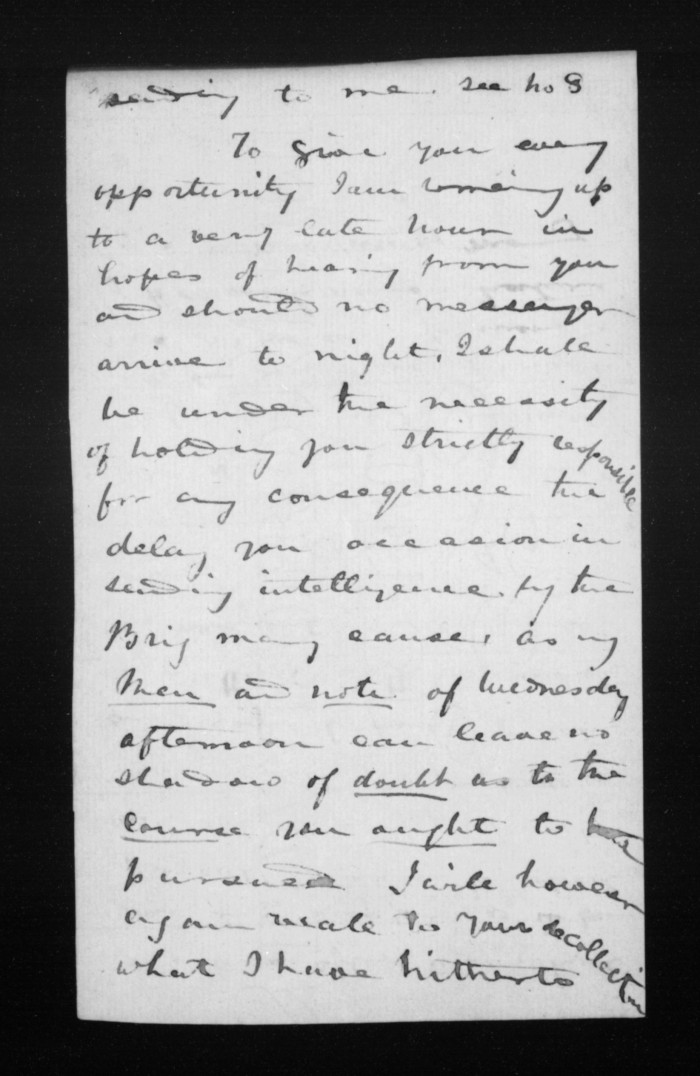 sending to me. see no 8
To give you every
opportunity I am remaining up
to a very late hour in
hopes of hearing from you
and should no messenger
arrive to night, I shall
be under the necessity
of holding you strictly responsible
for any consequence the
delay you occasion in
sending intelligence by the
Brig may cause, as my
Men and note of Wednesday
afternoon can leave no
shadow of doubt as to the
course you ought to
pursued I will however
again recale to your recollection
what I have hitherto